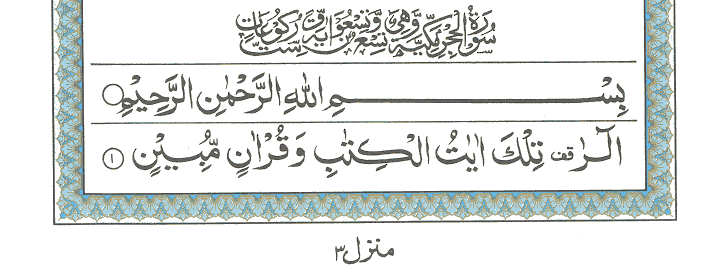 سُوْرَةُ الْحِجْرِ مَكِّيَّةٌ وَّهِيَ تِسْعٌ وَّتِسْعُوْنَ اٰيَةً وَّ سِتُّ رُكُوْعَاتٍ
بِسْمِ اللّٰهِ الرَّحْمٰنِ الرَّحِيْمِ
الٓرٰ قف تِلْكَ اٰيٰتُ الْكِتٰبِ وَ قُرْاٰنٍ مُّبِيْنٍ ۝۱
منزل ۳